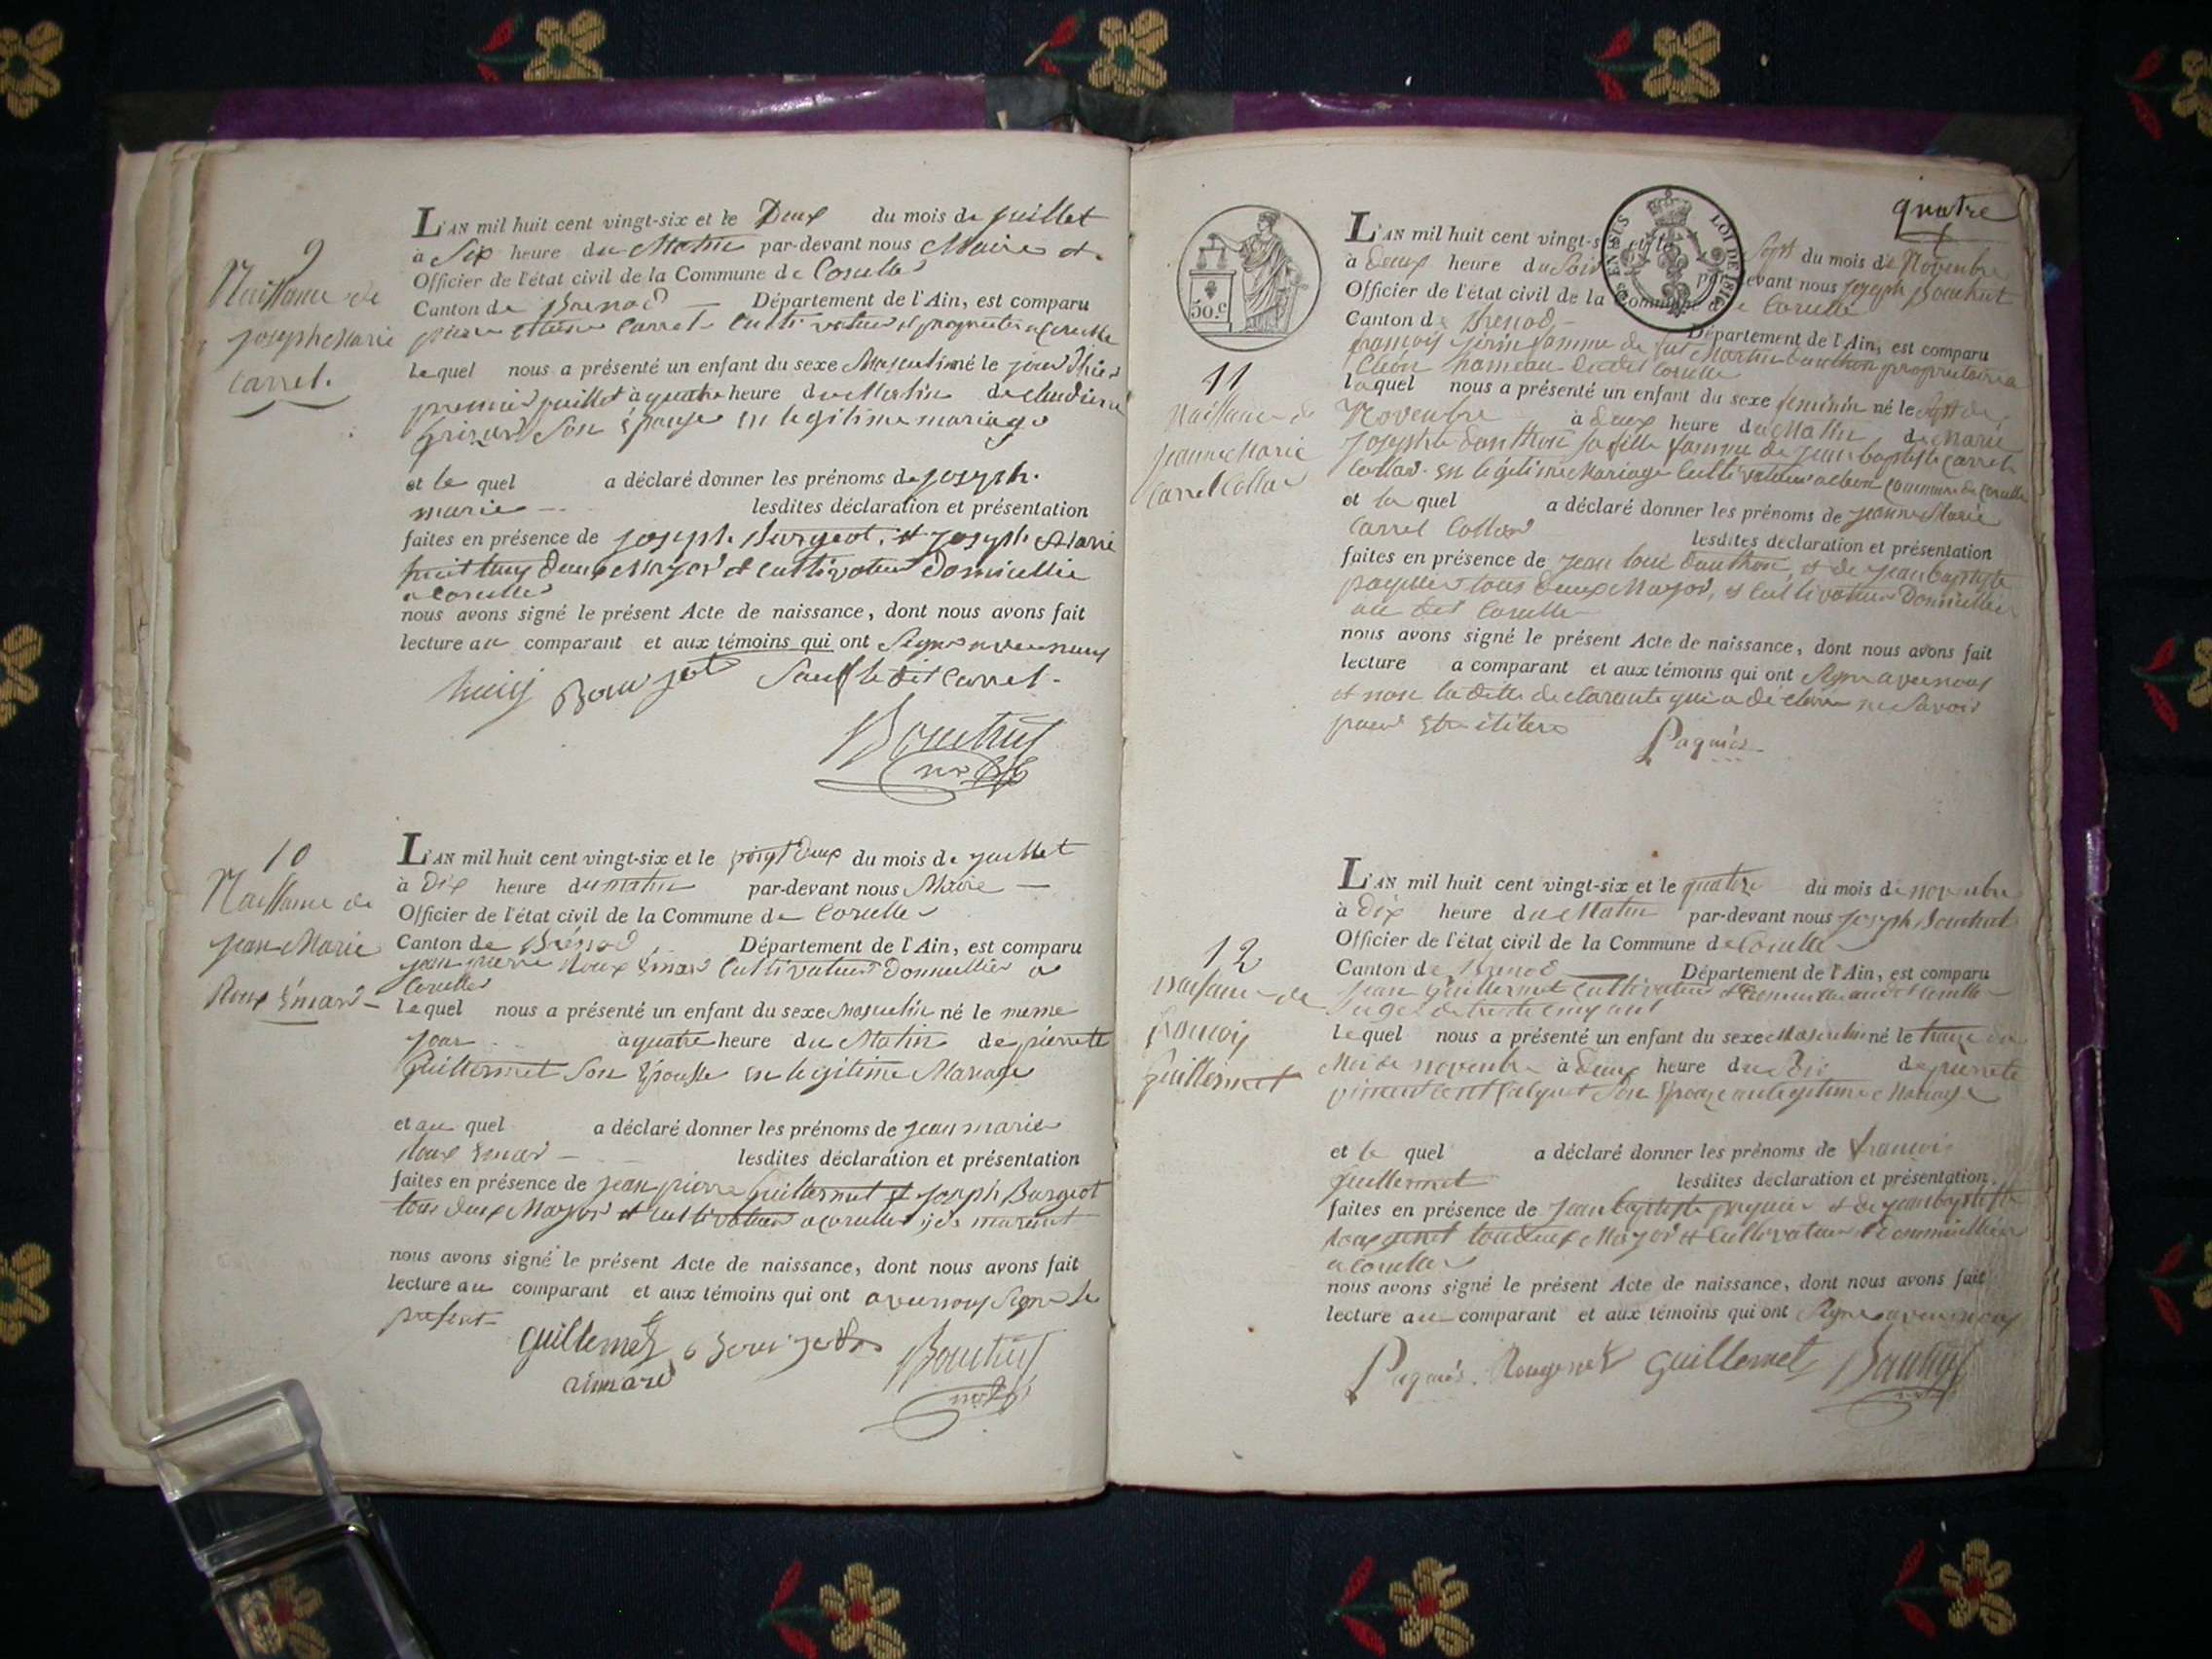 9
Naissance de
joseph Marie
Carrel.
L'AN mil huit cent vingt-six et le Deux du mois de juillet
à Six heure du Matin par-devant nous Maire et
Officier de l'état civil de la Commune de Corcelle
Canton de Brenod — Département de l'Ain, est comparu
pierre Carrel Cultivateur et propriétaire a Corcelle
lequel nous a présenté un enfant du sexe Masculin né le jour Dhier
premier juillet à quatre heure du Matin de Claudine
Son Epouse en legitime mariage
et le quel a déclaré donner les prénoms de joseph.
marie lesdites déclaration et présentation
faites en présence de joseph Burgeot, et joseph Marie
tous Deux Major et Cultivateur Domicillie
a Corcelle
nous avons signé le présent Acte de naissance, dont nous avons fait
lecture au comparant et aux témoins qui ont Signe avec nous
Sauf le dit Carrel.
10
Naissance de
jean Marie
Roux Emard
L'AN mil huit cent vingt-six et le vingt Deux du mois de juillet
à Dix heure du matin par-devant nous Maire —
Officier de l'état civil de la Commune de Corcelle
Canton de Brénod Département de l'Ain, est comparu
jean pierre Roux Emard Cultivateur Domicillier a
Corcelle
lequel nous a présenté un enfant du sexe Masculin né le meme
jour à quatre heure du Matin de pierrette
Guillermet Son Epousse en legitime Mariage
et au quel a déclaré donner les prénoms de jean marie
Roux Emard — lesdites déclaration et présentation
faites en présence de jean pierre Guillermet et joseph Burgeot
tous deux Major et Cultivateur a Corcelle
nous avons signé le présent Acte de naissance, dont nous avons fait
lecture au comparant et aux témoins qui ont avec nous Signe le
present
guillermet
Bouthuy
quatre
50.c
LOI DE 1816
11
Naissance de
jeanne Marie
Carrel Collar
L'AN mil huit cent vingt-six et le Sept du mois de Novembre
à Deux heure du Soir par-devant nous joseph
Officier de l'état civil de la Commune de Corcelle
Canton de Brenod Département de l'Ain, est comparu
françois famme de Martin Danthon propriétaire a
Cléon hameau Dudit Corcelle
laquel nous a présenté un enfant du sexe feminin né le Sept de
Novembre à Deux heure du Matin de Marie
josephte Danthon sa fille famme de jean baptiste Carrel
Collar en légitime Mariage Cultivateur a Cleon Commune de Corcelle
et la quel a déclaré donner les prénoms de jeanne Marie
Carrel Collar lesdites déclaration et présentation
faites en présence de jean Danthon, et de jean baptiste
tous Deux Major, et Cultivateur Domicillier
au dit Corcelle
nous avons signé le présent Acte de naissance, dont nous avons fait
lecture a comparant et aux témoins qui ont Signe avec nous
et non la dette declarante qui a déclaré ne Savoir
Paquiés
12
Naissance de
françois
Guillermet
L'AN mil huit cent vingt-six et le quatorze du mois de novembre
à Dix heure du Matin par-devant nous joseph
Officier de l'état civil de la Commune de Corcelle
Canton de Brenod Département de l'Ain, est comparu
jean Guillermet Cultivateur
lequel nous a présenté un enfant du sexe Masculin né le treize du
Moi de novembre à Deux heure du de pierrete
Son Epouze en legitime Mariage
et le quel a déclaré donner les prénoms de françois
Guillermet lesdites déclaration et présentation
faites en présence de jean baptiste et de jean baptiste
Rougemet tous Deux Major et Cultivateur Domicillier
a Corcelle
nous avons signé le présent Acte de naissance, dont nous avons fait
lecture au comparant et aux témoins qui ont Signe avec nous
Paquiés. Rougemet guillermet